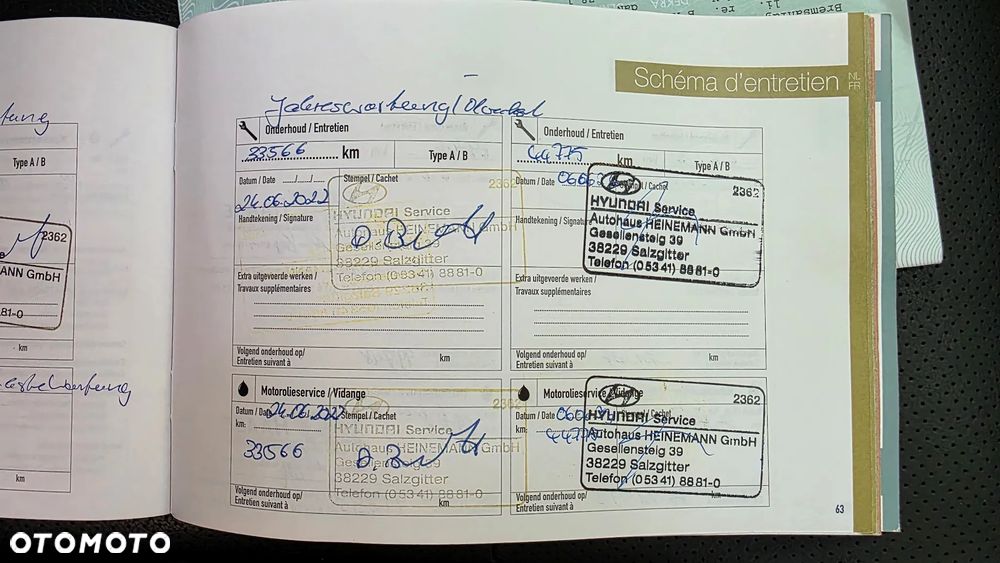 Schéma d'entretien
NL
FR
Onderhoud / Entretien
33566 km
Type A / B
Datum / Date
24.06.2022
Stempel / Cachet
2362
HYUNDAI Service
Autohaus HEINEMANN GmbH
38229 Salzgitter
Telefon (0 53 41) 88 81-0
Handtekening / Signature
Extra uitgevoerde werken /
Travaux supplémentaires
Volgend onderhoud op/
Entretien suivant à
km
Onderhoud / Entretien
44775 km
Type A / B
Datum / Date
Stempel / Cachet
2362
HYUNDAI Service
Autohaus HEINEMANN GmbH
Gesellensteig 39
38229 Salzgitter
Telefon (0 53 41) 88 81-0
Handtekening / Signature
Extra uitgevoerde werken /
Travaux supplémentaires
Volgend onderhoud op/
Entretien suivant à
km
Motorolieservice / Vidange
Datum / Date 24.06.2022
km:
33566
Stempel / Cachet
2362
HYUNDAI Service
Autohaus HEINEMANN GmbH
38229 Salzgitter
Telefon (0 53 41) 88 81-0
Volgend onderhoud op/
Entretien suivant à
km
Motorolieservice / Vidange
Datum / Date
km:
44775
2362
HYUNDAI Service
Autohaus HEINEMANN GmbH
Gesellensteig 39
38229 Salzgitter
Telefon (0 53 41) 88 81-0
Volgend onderhoud op/
Entretien suivant à
km
63
2362
MANN GmbH
81-0
km
OTOMOTO